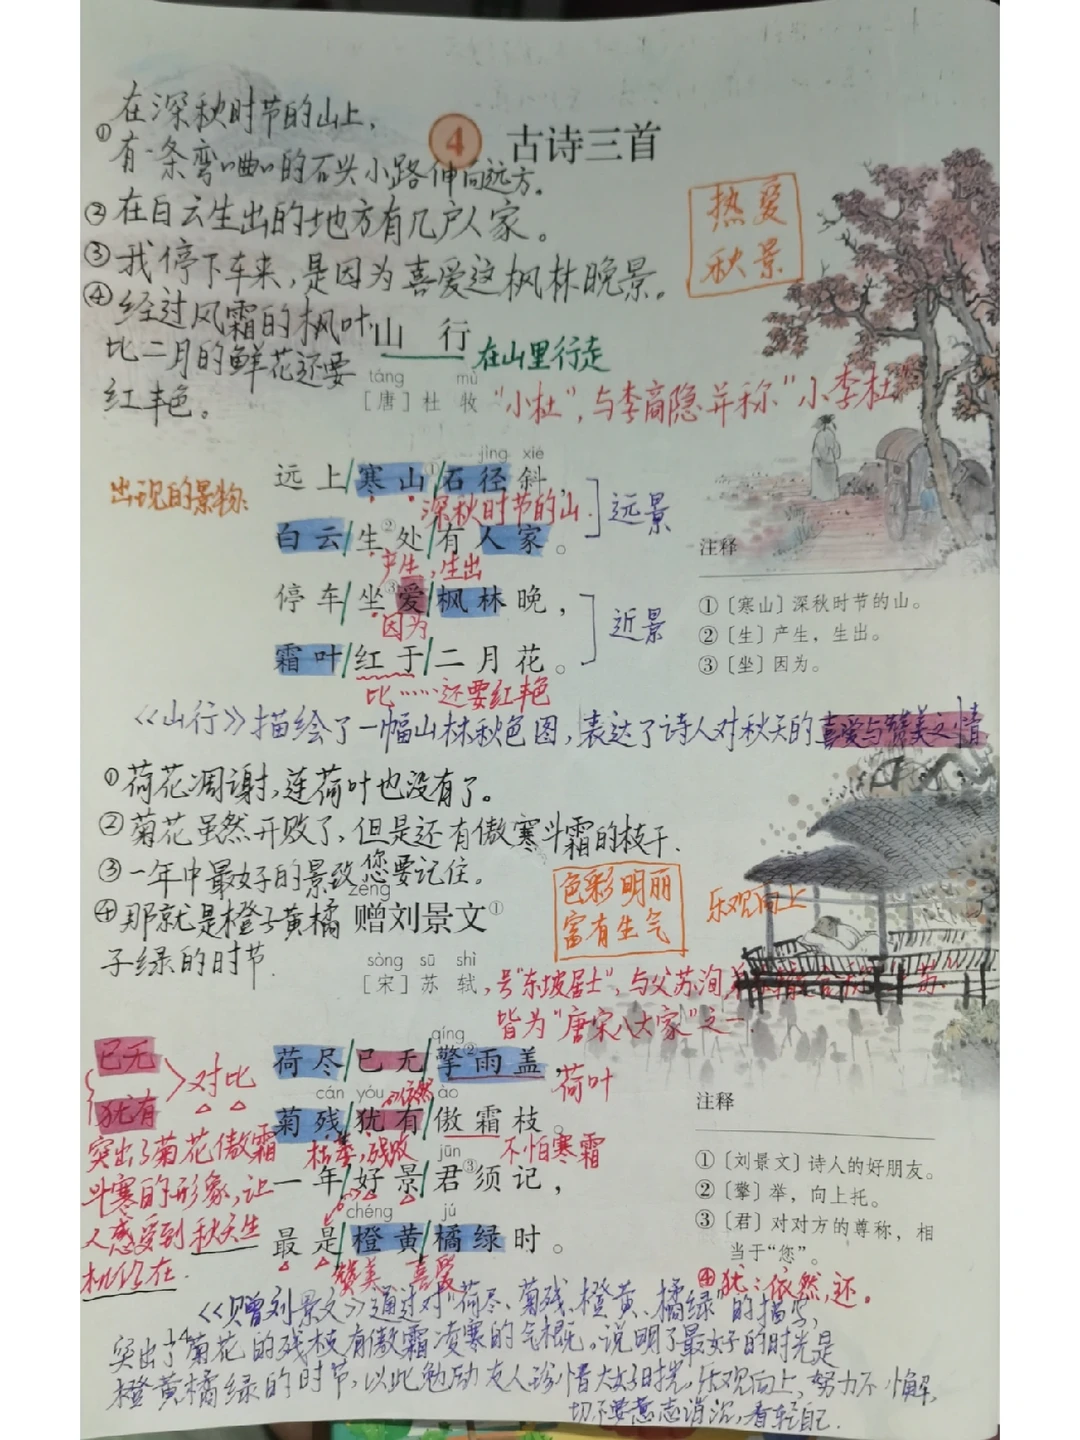 在深秋时节的山上，
①有一条弯弯曲曲的石头小路伸向远方。
4 古诗三首
②在白云生出的地方有几户人家。
热爱
秋景
③我停下车来，是因为喜爱这枫林晚景。
④经过风霜的枫叶
比二月的鲜花还要
红丰色。
山 行
在山里行走
táng mù
［唐］杜 牧
“小杜”，与李商隐并称“小李杜
出现的景物：
jìng xié
远上/寒山①/石径斜，
深秋时节的山.
白云/生②处/有人家。
产生，生出
远景
停车/坐③爱/枫林晚，
因为
霜叶/红于/二月花。
比……还要红丰色
近景
注释
①〔寒山〕深秋时节的山。
②〔生〕产生，生出。
③〔坐〕因为。
《山行》描绘了一幅山林秋色图，表达了诗人对秋天的喜爱与赞美之情
①荷花凋谢，连荷叶也没有了。
②菊花虽然开败了，但是还有傲寒斗霜的枝干.
③一年中最好的景致您要记住。
④那就是橙子黄橘
子绿的时节.
zèng
赠刘景文①
色彩明丽
富有生气
乐观向上
sòng sū shì
［宋］苏 轼
，号“东坡居士”，与父苏洵
苏”
皆为“唐宋八大家”之一.
已无
犹有
对比
突出了菊花傲霜
斗寒的形象，让
人感受到秋天生
机仍在.
qíng
荷尽/已无/擎②雨盖，
荷叶
cán yóu ào
仍然
菊残/犹有/傲霜枝。
枯萎，残败
不怕寒霜
jūn
一年/好景/君③须记，
chéng jú
最是/橙黄/橘绿时。
赞美 喜爱
注释
①〔刘景文〕诗人的好朋友。
②〔擎〕举，向上托。
③〔君〕对对方的尊称，相
当于“您”。
④犹：依然，还。
《赠刘景文》通过对“荷尽、菊残、橙黄、橘绿”的描写，
突出了菊花的残枝有傲霜凌寒的气概。说明了最好的时光是
14
橙黄橘绿的时节，以此勉励友人珍惜大好时光，乐观向上，努力不懈，
切不要意志消沉，看轻自己.